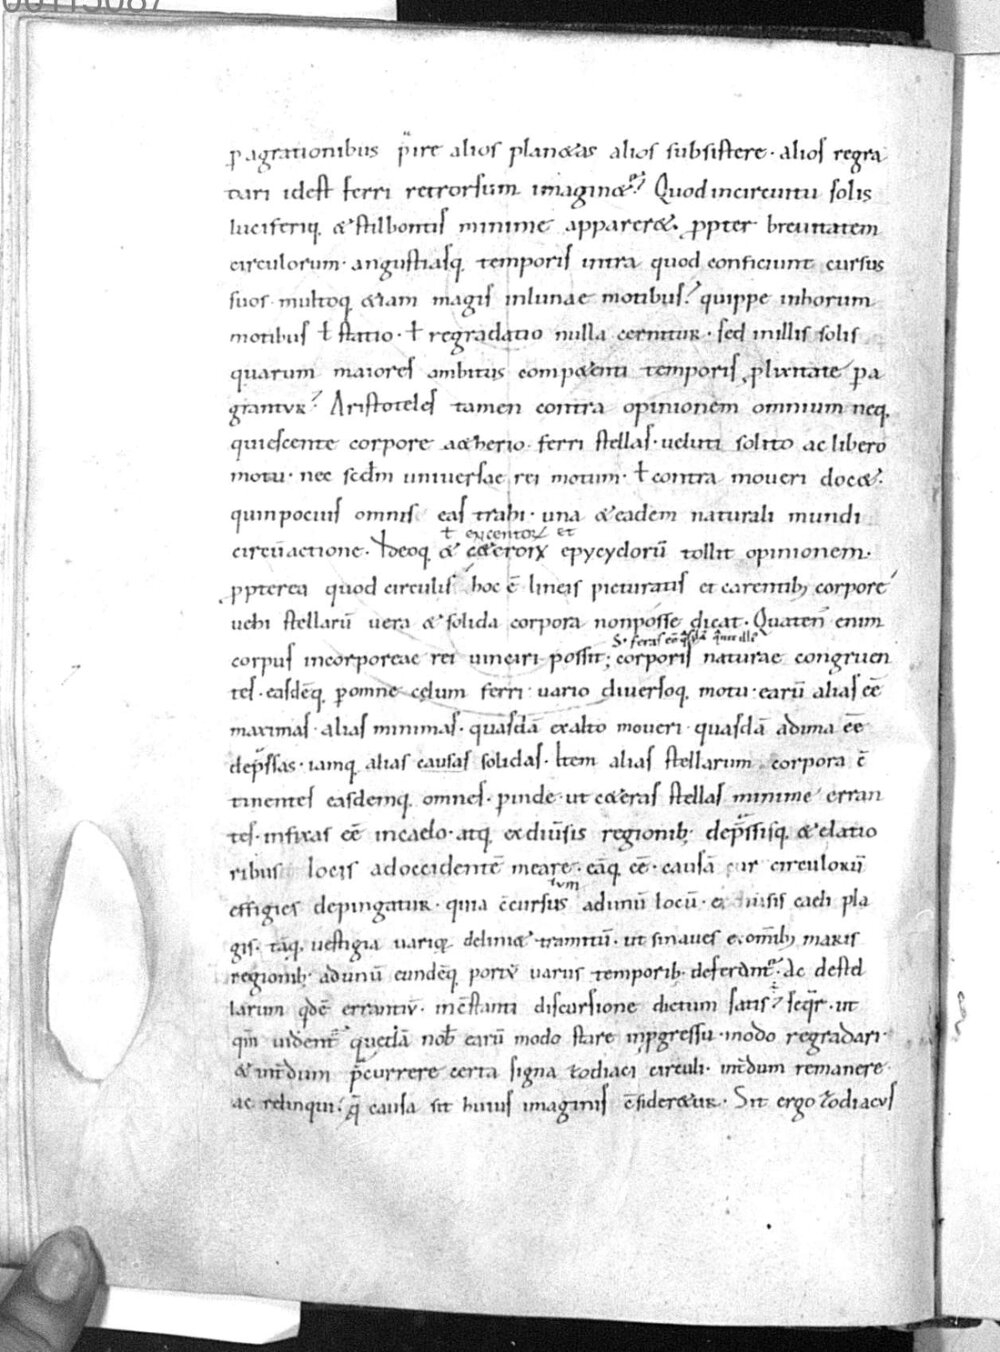 ꝑagrationibus p̃ire alios planetas alios subsistere · alios regra
tari idest ferri retrorsum imaginet᷑? Quod incircuitu solis
luciferiq; & stilbontis minime apparere&. ꝓpter breuitatem
circulorum · angustiasq; temporis intra quod conficiunt cursus
suos · multoq; &iam magis inlunae motibus? quippe inhorum
motibus ł statio · ł regradatio nulla cernitur · sed inillis solis
quarum maiores ambitus compe&enti temporis ꝓlixitate ꝑa
grantur? Aristoteles tamen contra opinionem omnium neq;
quiescente corpore a&herio · ferri stellas · ueluti solito ac libero
motu · nec scdm uniuersae rei motum · ł contra moueri doc&.
quinpocius omnis eas trahi · una & eadem naturali mundi
ł excentorꝝ et
circũactione. Ideoq; & c&erorꝝ epycyclorũ tollit opinionem ·
ꝓpterea quod circulis hoc ẽ lineis picturatis et carentib; corpore
uehi stellarũ uera & solida corpora nonposse dicat · Quaten̄ enim
corpus incorporeae rei uinciri possit; corporis naturae congruen
tes · easdẽq; ꝑomne cęlum ferri uario diuersoq; motu · earũ alias ẽe
maximas · alias minimas · quasdā exalto moueri · quasdā abima ẽe
dep̃ssas · iamq; alias causas solidas · Item alias stellarum corpora c̄
tinentes easdemq; omnes · ꝓinde · ut c&eras stellas minime erran
tes · infixas ẽe incaelo · atq; exdiũsis regionib; dep̃ssisq; & elatio
ribus locis adoccidentẽ meare · eāq; ẽe · causā cur circulorũ
sum
effigies depingatur · quia c̄cursus adunũ locũ · ex diũsis caeli pla
gis · tāq; uestigia uariq; deline& tramitũ · ut sinaues exom̄ib; maris
regionib; adunũ eundẽq; portũ uariis temporib; deferant᷑ · Ac destel
larum qdẽ errantiũ · inc̄stanti discursione dictum satis? seqr̃ · ut
qm̄ uident᷑ quedā nob̄ earũ modo stare inpgressu · modo regradari ·
& int̃dum p̃currere certa signa zodiaci circuli · int̃dum remanere
ac relinqui? q̃ causa sit huius imaginis c̄sideretur · Sit ergo zodiacus